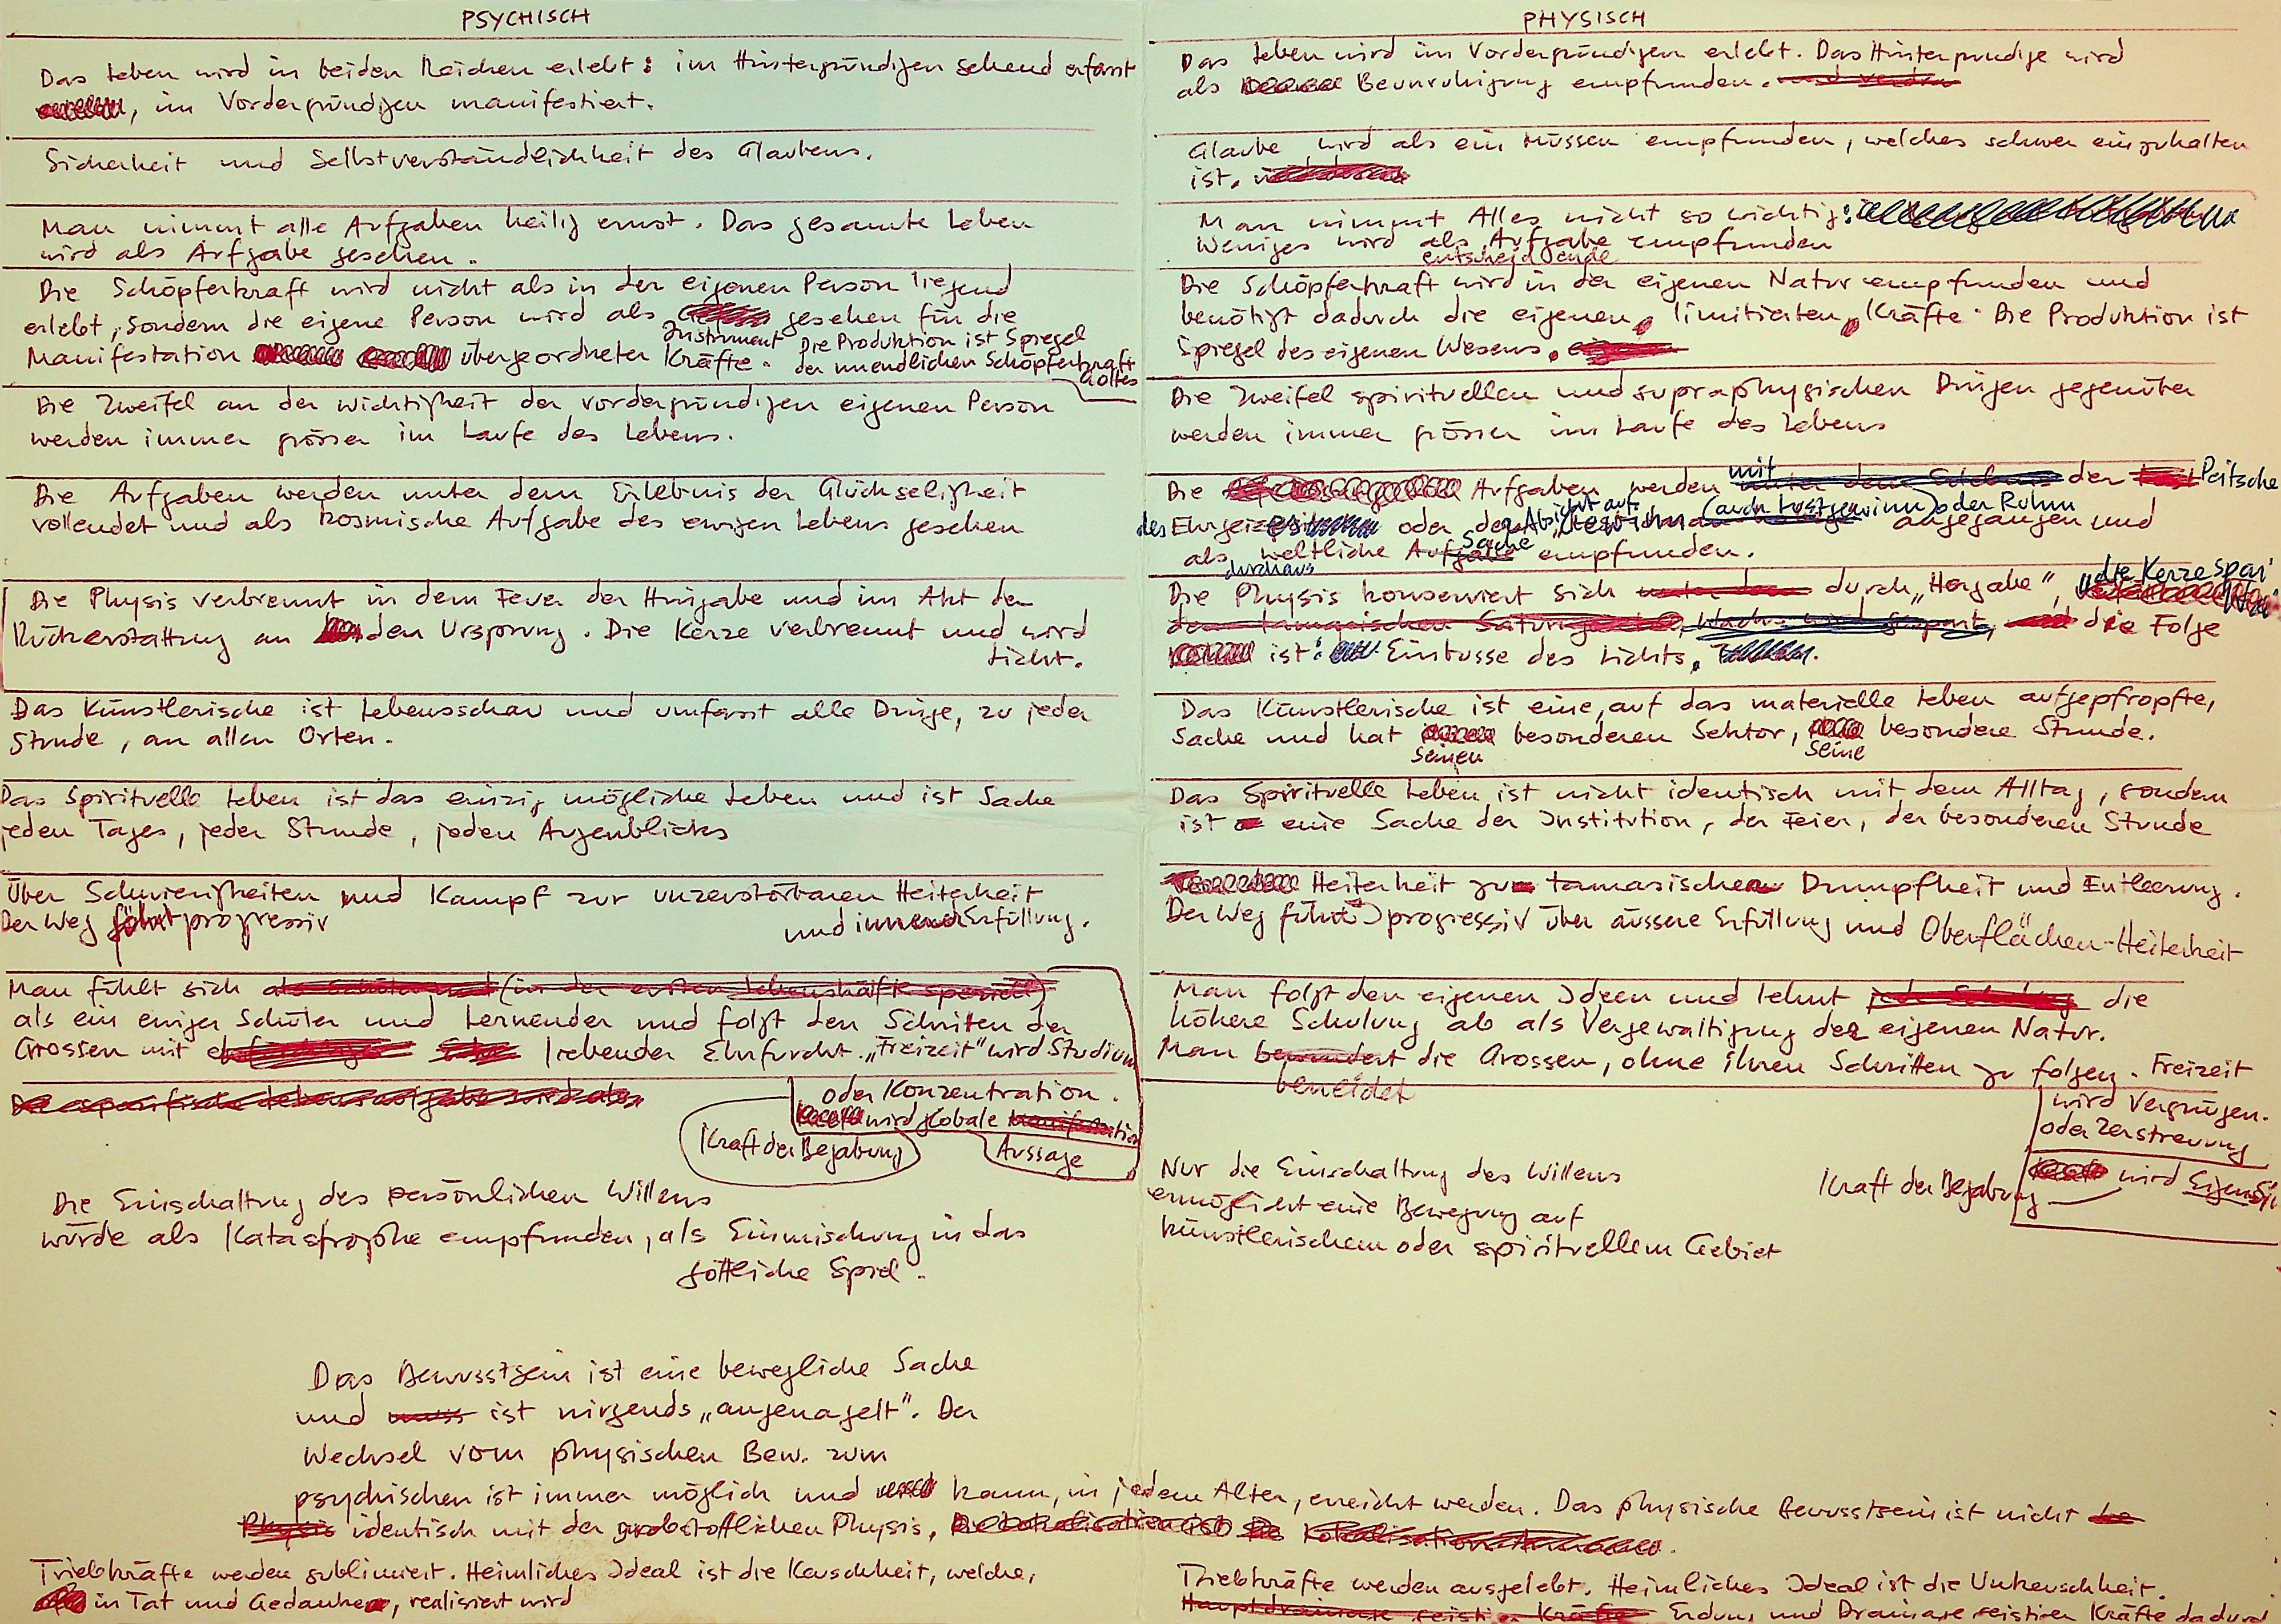 PSYCHISCH
Das Leben wird in beiden Reichen erlebt: im Hintergründigen sehend erfasst
, im Vordergründigen manifestiert.
Sicherheit und Selbstverständlichkeit des Glaubens.
Man nimmt alle Aufgaben heilig ernst. Das gesamte Leben
wird als Aufgabe gesehen.
Die Schöpferkraft wird nicht als in der eigenen Person liegend
erlebt, sondern die eigene Person wird als gesehen für die
Instrument Die Produktion ist Spiegel
Manifestation übergeordneter Kräfte. der unendlichen Schöpferkraft
Gottes
Die Zweifel an der Wichtigkeit der vordergründigen eigenen Person
werden immer grösser im Laufe des Lebens.
Die Aufgaben werden unter dem Erlebnis der Glückseligkeit
vollendet und als kosmische Aufgabe des ewigen Lebens gesehen
Die Physis verbrennt in dem Feuer der Hingabe und im Akt der
Rückerstattung an den Ursprung. Die Kerze verbrennt und wird
Licht.
Das Künstlerische ist Lebensschau und umfasst alle Dinge, zu jeder
Stunde, an allen Orten.
Das Spirituelle Leben ist das einzig mögliche Leben und ist Sache
jeden Tages, jeder Stunde, jeden Augenblicks
Über Schwierigkeiten und Kampf zur unzerstörbaren Heiterkeit
Der Weg führt progressiv
und innerer Erfüllung.
Man fühlt sich (in der ersten Lebenshälfte speziell)
als ein ewiger Schüler und Lernender und folgt den Schritten der
Grossen mit liebender Ehrfurcht. „Freizeit" wird Studium
oder Konzentration.
wird globale Manifestation
Kraft der Begabung
Aussage
Die spezifische Lebensaufgabe wird als
Die Einschaltung des persönlichen Willens
würde als Katastrophe empfunden, als Einmischung in das
göttliche Spiel.
PHYSISCH
Das Leben wird im Vordergründigen erlebt. Das Hintergründige wird
als Beunruhigung empfunden. und werden
Glaube wird als ein Müssen empfunden, welches schwer einzuhalten
ist.
Man nimmt Alles nicht so wichtig:
Weniges wird als Aufgabe empfunden
entscheidende
Die Schöpferkraft wird in der eigenen Natur empfunden und
benötigt dadurch die eigenen, limitierten, Kräfte. Die Produktion ist
Spiegel des eigenen Wesens.
Die Zweifel spirituellen und supraphysischen Dingen gegenüber
werden immer grösser im Laufe des Lebens
mit
Die Aufgaben werden unter dem Erlebnis der Peitsche
Absicht auf (auch Lustgewinn) oder Ruhm
des Ehrgeizes oder der „Gewinn angegangen und
Sache
als weltliche Aufgabe empfunden.
durchaus
„die Kerze spart
Die Physis konserviert sich unter dem durch „Hergabe",
die Folge
ist: Einbusse des Lichts.
Das Künstlerische ist eine, auf das materielle Leben aufgepfropfte,
Sache und hat besonderen Sektor, besondere Stunde.
seinen seine
Das Spirituelle Leben ist nicht identisch mit dem Alltag, sondern
ist eine Sache der Institution, der Feier, der besonderen Stunde
Heiterkeit zu tamasischer Dumpfheit und Entleerung.
Der Weg führt progressiv über äussere Erfüllung und Oberflächen-Heiterkeit
Man folgt den eigenen Ideen und lehnt jede Schulung die
höhere Schulung ab als Vergewaltigung der eigenen Natur.
Man bewundert die Grossen, ohne ihren Schritten zu folgen. Freizeit
beneidet
wird Vergnügen.
oder Zerstreuung
Kraft der Begabung wird
Nur die Einschaltung des Willens
ermöglicht eine Bewegung auf
künstlerischem oder spirituellem Gebiet
Das Bewusstsein ist eine bewegliche Sache
und muss ist nirgends „angenagelt". Der
Wechsel vom physischen Bew. zum
psychischen ist immer möglich und kann, in jedem Alter, erreicht werden. Das physische Bewusstsein ist nicht
Physis identisch mit der grobstofflichen Physis,
Triebkräfte werden sublimiert. Heimliches Ideal ist die Keuschheit, welche,
in Tat und Gedanken, realisiert wird
Triebkräfte werden ausgelebt. Heimliches Ideal ist die Unkeuschheit.
Hauptdrainage geistiger Kräfte Erdung und Drainage geistiger Kräfte dadurch